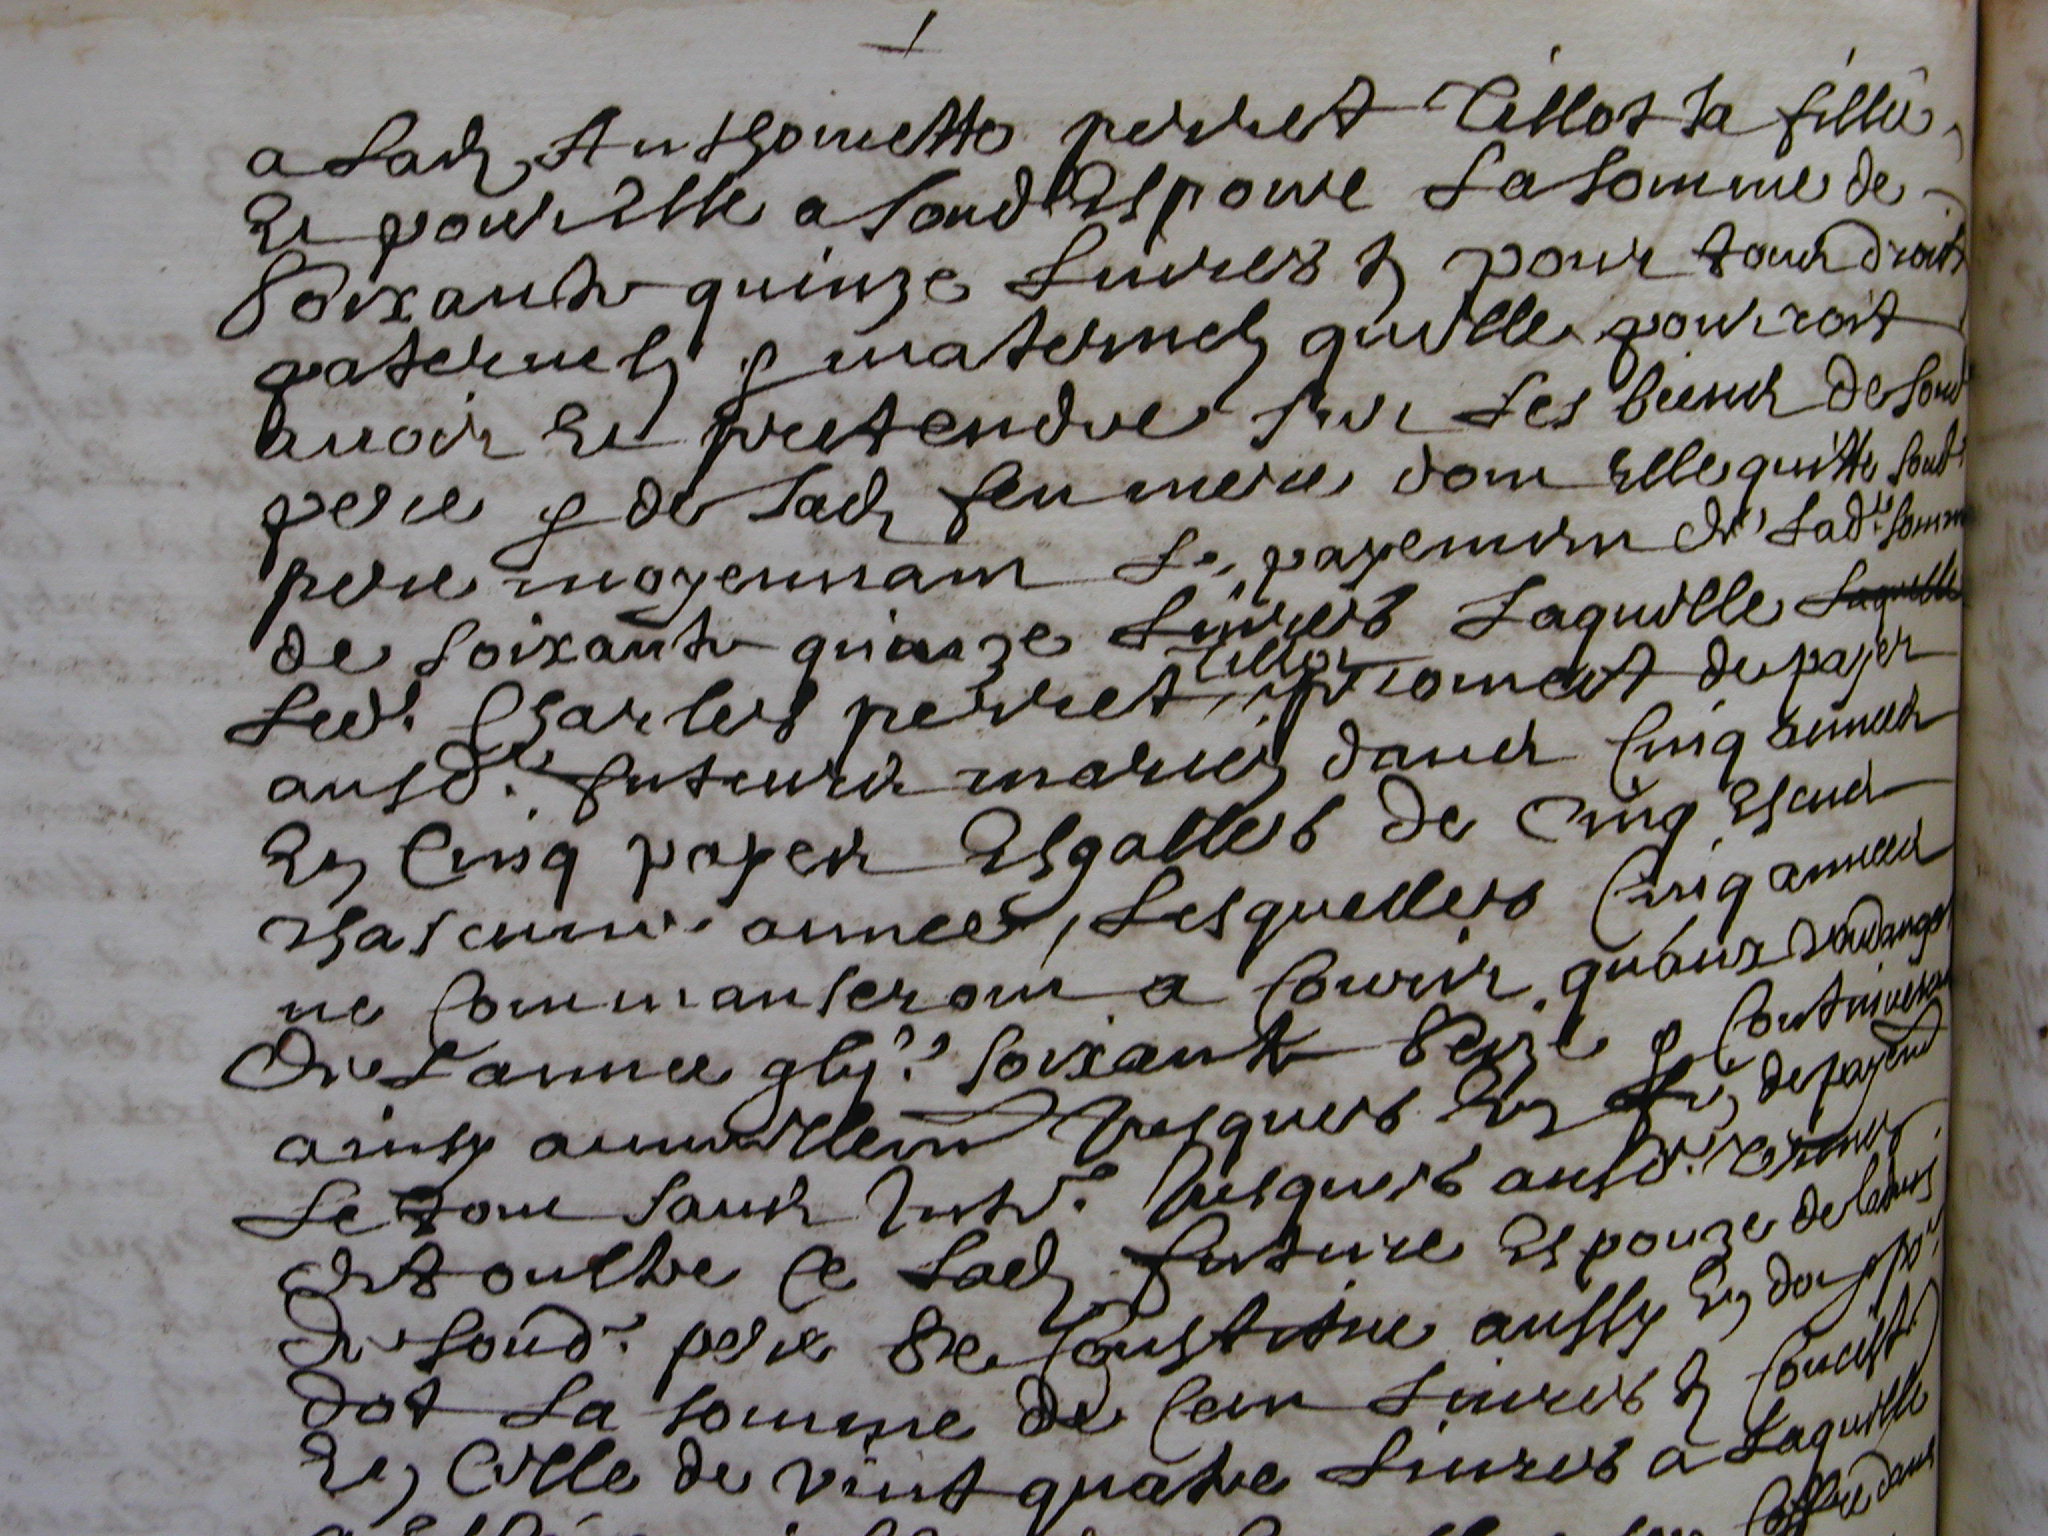 a lad Anthoinette perret Tillot sa fille
et pour elle a sond espoux la somme de
soixante quinze livres et pour tous droits
paternels et maternels qu'elle pourroit
avoir et pretendre sur les biens de sond
pere et de lad feu mere dont elle quitte sond
pere moyennant le payement de lad somme
de soixante quinze livres laquelle laquelle
led Charles perret Tillot promet de payer
ausd futurs mariez dans cinq années
en cinq payes esgalles de cinq escus
chascune année, lesquelles cinq années
ne commanseront a courir qu'aux vendanges
de l'année soixante seize et continueront
ainsy annuellem jusques en fin de payem
le tout sans jusques ausd termes
et oultre ce lad future espouze de
de sond pere se constitue aussy en et po
dot la somme de cent livres et
en celle de vint quatre livres a laquelle
coffre dans